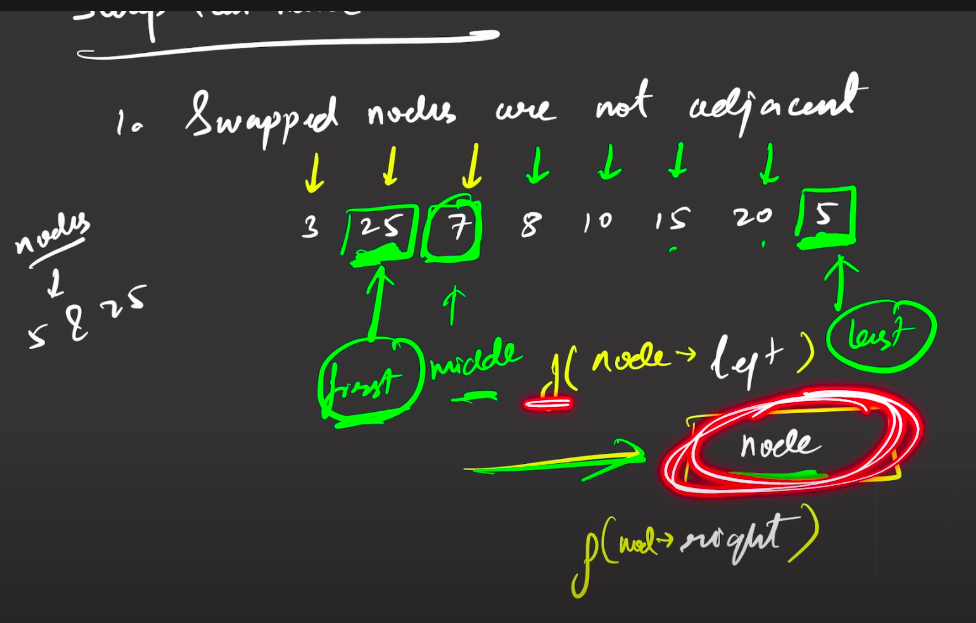 1. Swapped nodes are not adjacent
3 25 7 8 10 15 20 5
nodes
5 & 25
first middle last
f(node→left)
node
f(nod→right)